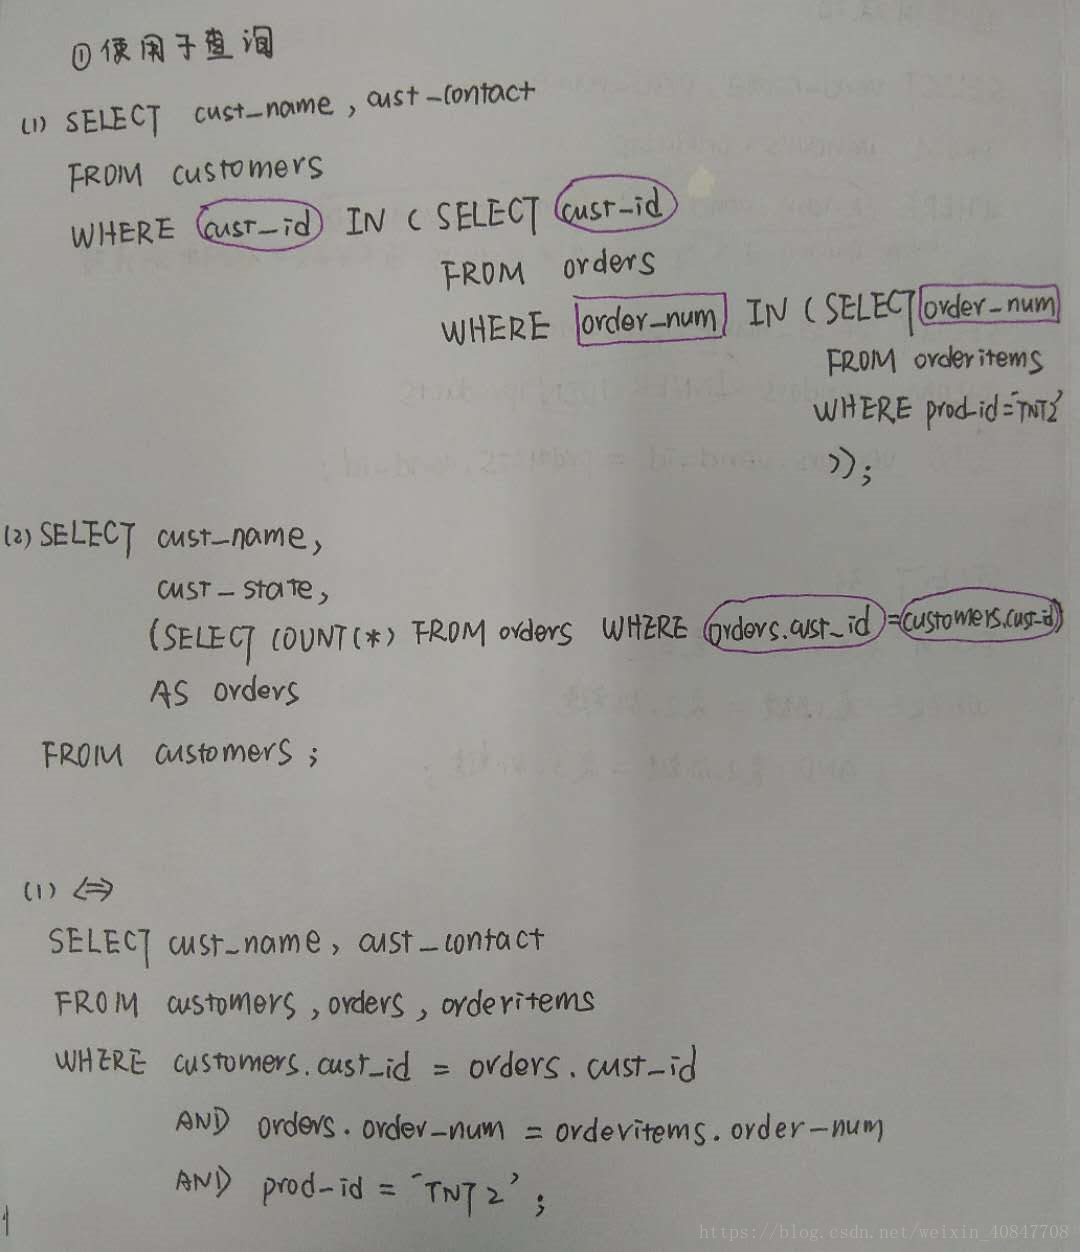 ①使用子查询
(1) SELECT cust_name, cust_contact
FROM customers
WHERE cust_id IN (SELECT cust_id
FROM orders
WHERE order_num IN (SELECT order_num
FROM orderitems
WHERE prod_id='TNT2'
));
(2) SELECT cust_name,
cust_state,
(SELECT COUNT(*) FROM orders WHERE orders.cust_id=customers.cust_id)
AS orders
FROM customers;
(1) <=>
SELECT cust_name, cust_contact
FROM customers, orders, orderitems
WHERE customers.cust_id = orders.cust_id
AND orders.order_num = orderitems.order_num
AND prod_id = 'TNT2';
https://blog.csdn.net/weixin_40847708